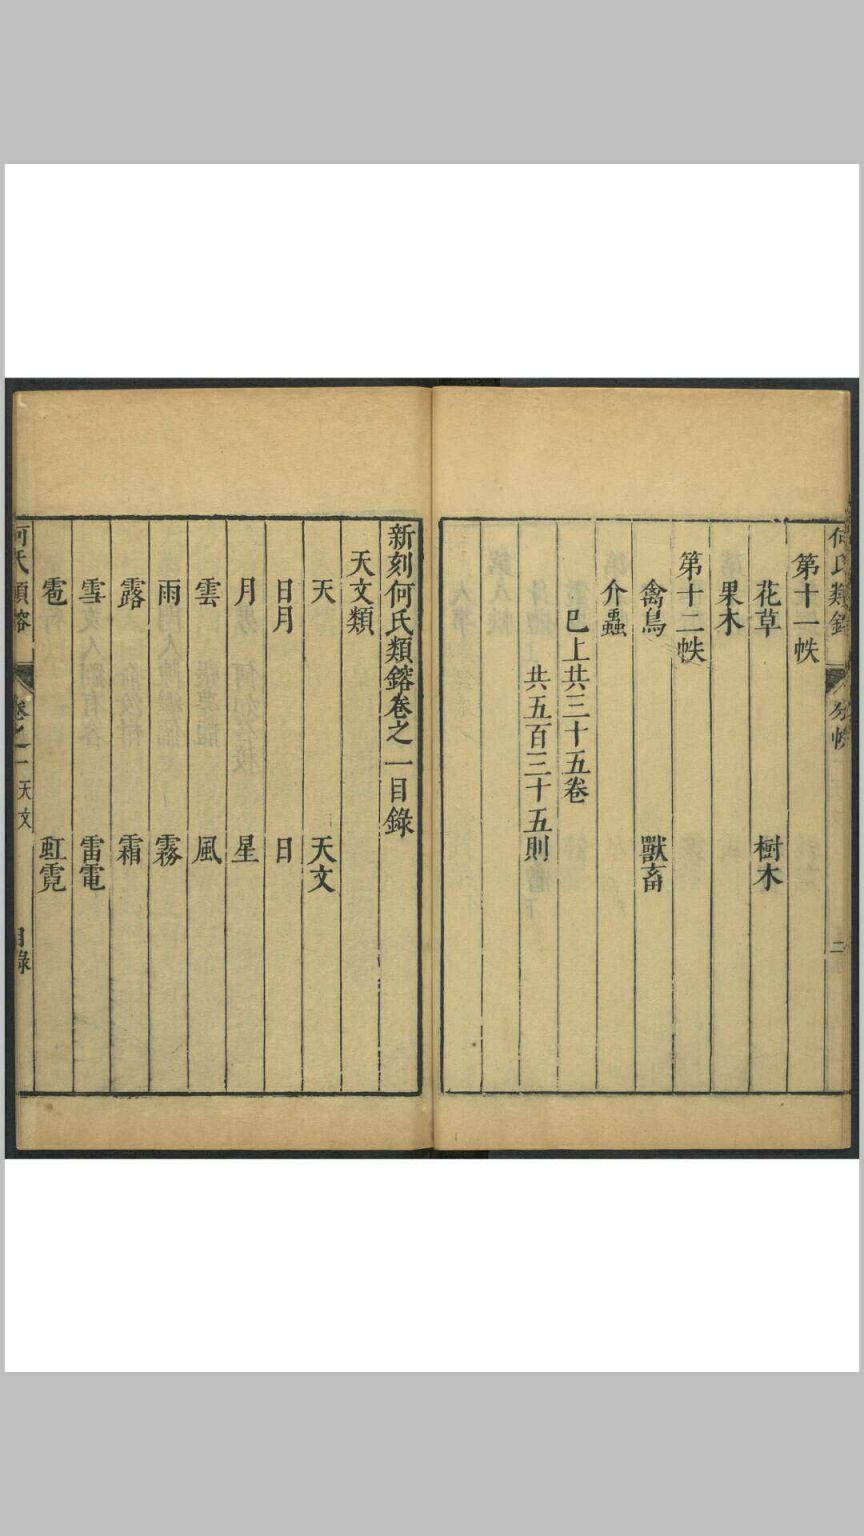 何氏類鎔 分帙 二
第十一帙
花草 樹木
果木
第十二帙
禽鳥 獸畜
介蟲
巳上共三十五卷
共五百三十五則
新刻何氏類鎔卷之一目錄
天文類
天 天文
日月 日
月 星
雲 風
雨 霧
露 霜
雪 雷電
雹 虹霓
何氏類鎔 卷之一 天文 目錄